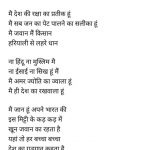 मै देश की रक्षा का प्रतीक हूं
मै सब जन का पेट पालने का सलीका हूं
मै जवान मैं किसान
हरियाली से लहरे धान
ना हिंदू ना मुस्लिम मै
ना ईसाई ना सिख हूं मैं
मै अमर ज्योति का ज्वाला हूं
मै ही देश का रखवाला हूं
मै जान हूं अपने भारत की
इस मिट्टी के कड़ कड़ में
खून जवान का रहता है
यहां तो हर बच्चा बच्चा
देश का गुणगान कहता मै